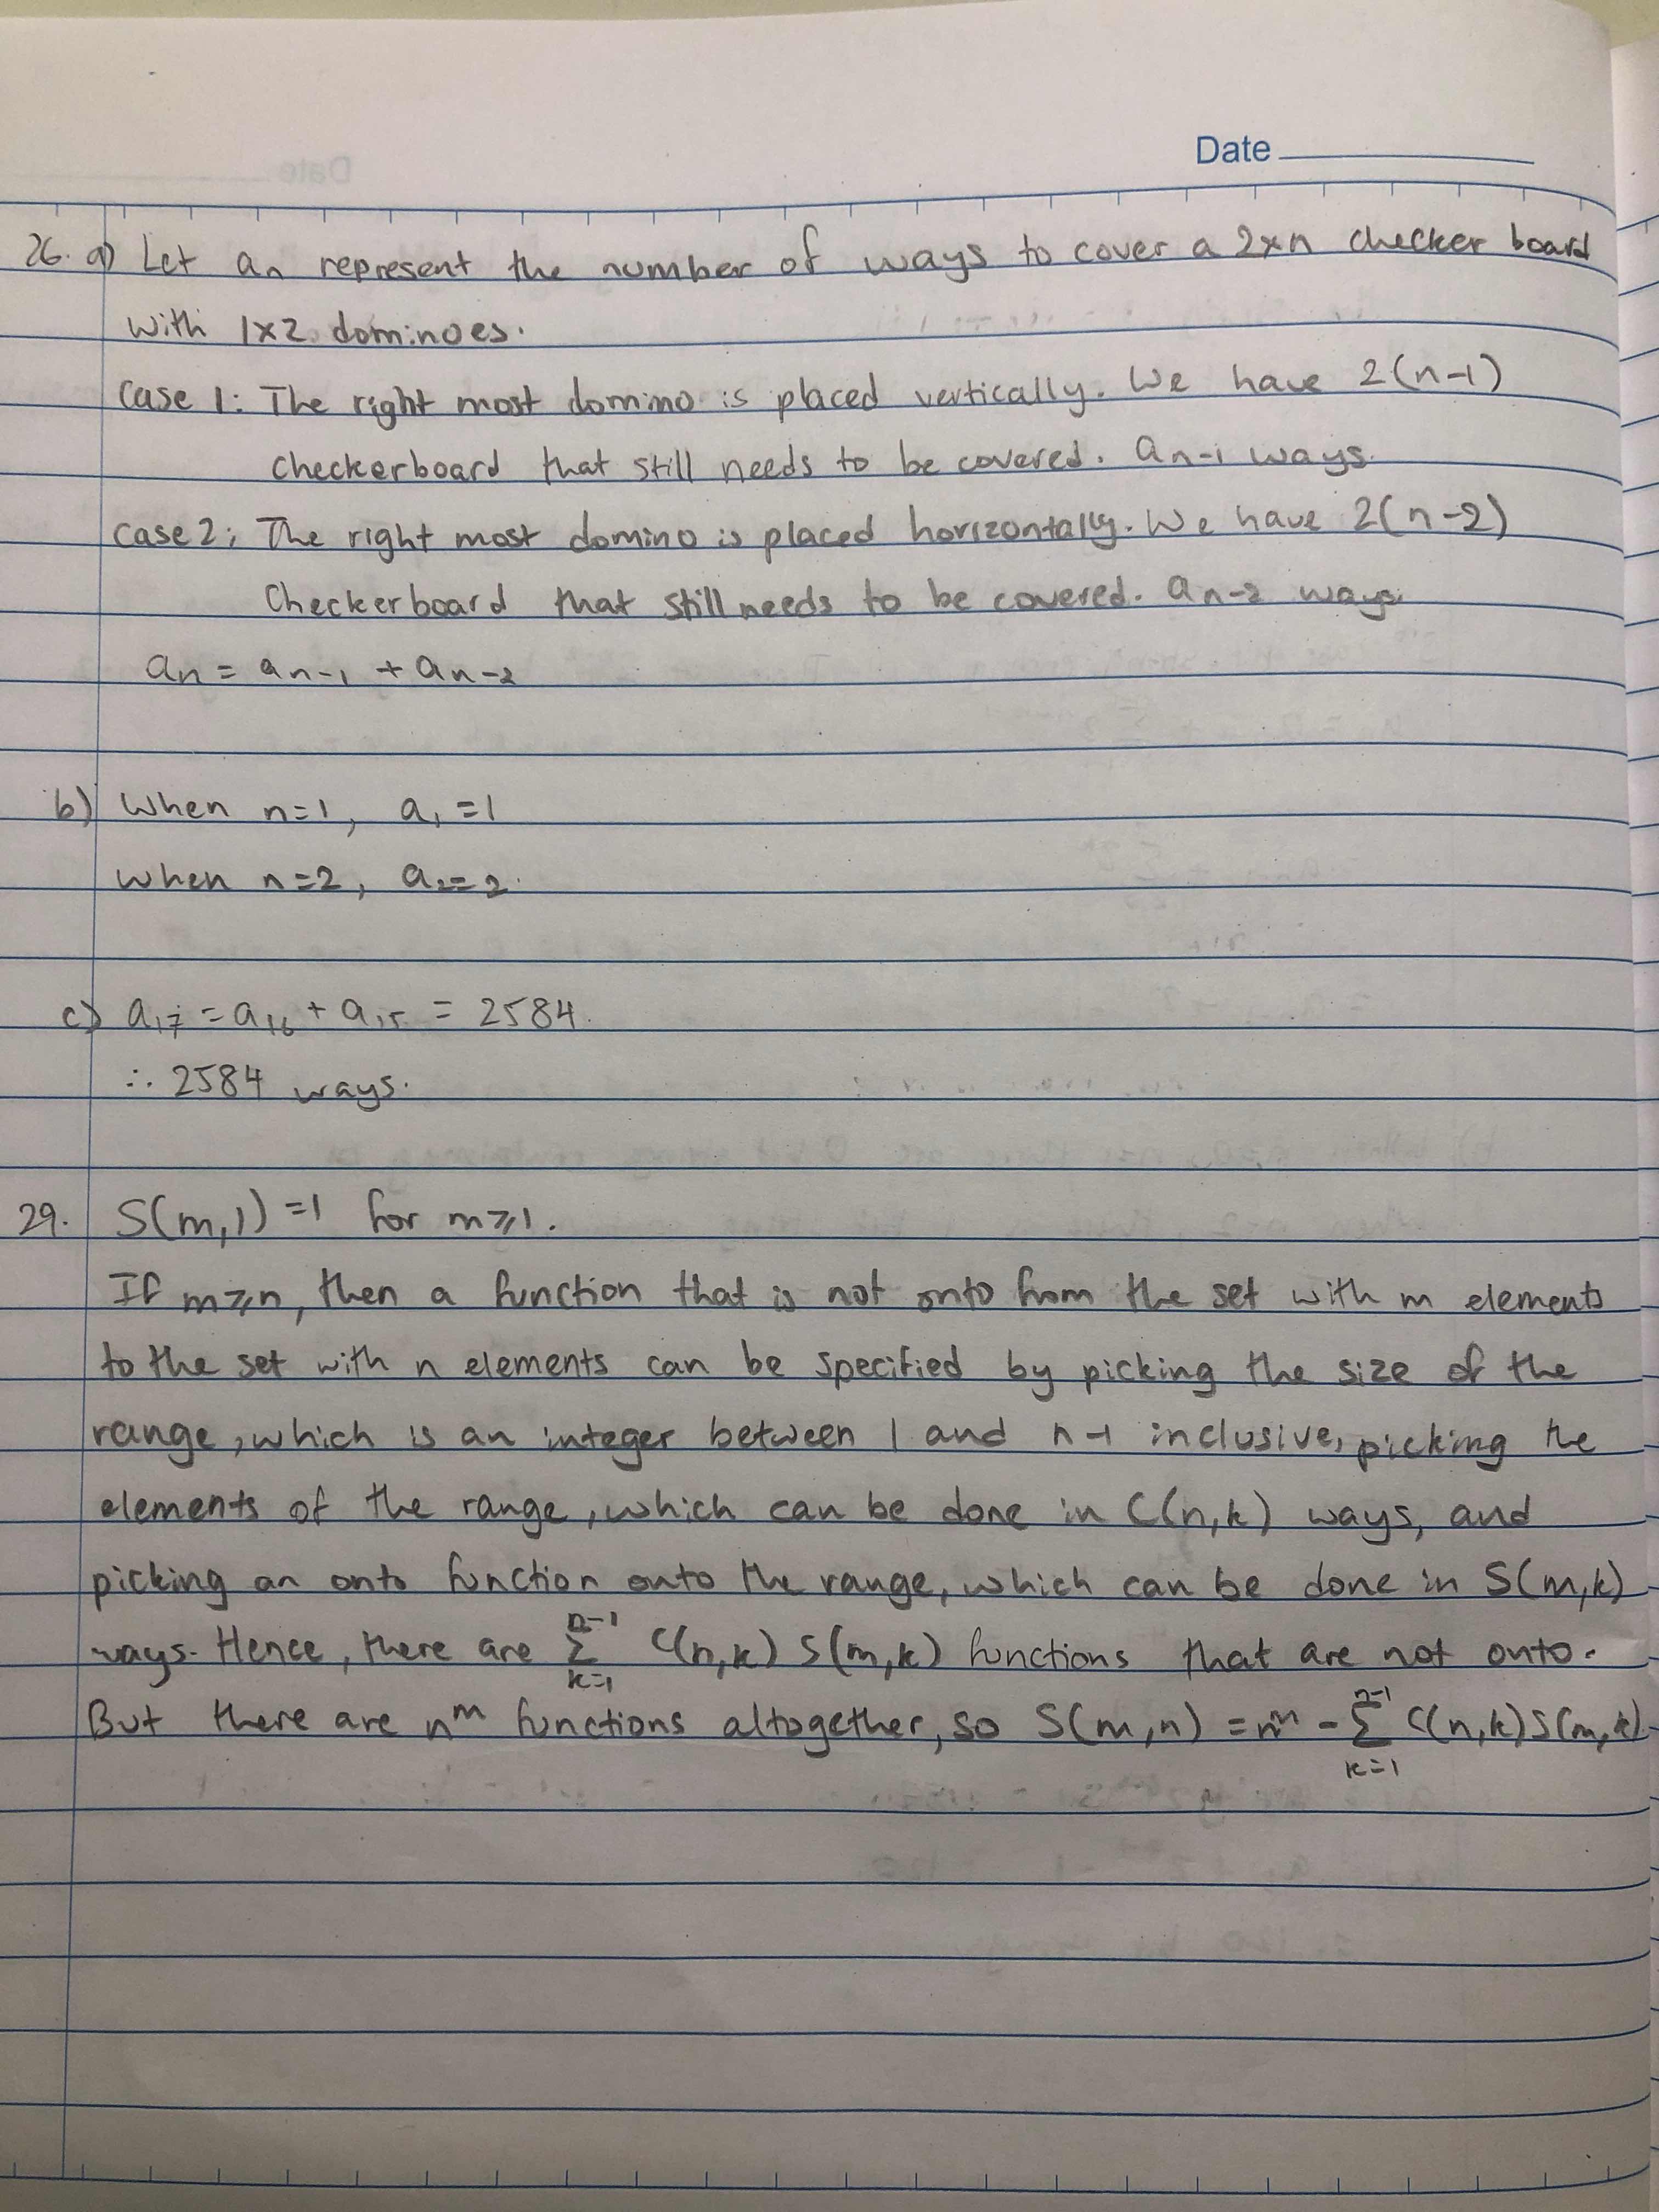 Date
26. a) Let an represent the number of ways to cover a 2×n checker board
with 1×2 dominoes.
Case 1: The right most domino is placed vertically. We have 2(n-1)
checkerboard that still needs to be covered. an-1 ways.
Case 2: The right most domino is placed horizontally. We have 2(n-2)
Checkerboard that still needs to be covered. an-2 ways.
an = an-1 + an-2
b) When n=1, a1 = 1
When n=2, a2=2.
c) a17 = a16 + a15 = 2584.
∴ 2584 ways.
29. S(m,1) = 1 for m≥1.
If m≥n, then a function that is not onto from the set with m elements
to the set with n elements can be specified by picking the size of the
range, which is an integer between 1 and n-1 inclusive, picking the
elements of the range, which can be done in C(n,k) ways, and
picking an onto function onto the range, which can be done in S(m,k)
ways. Hence, there are n-1 Σ k=1 C(n,k) S(m,k) functions that are not onto.
But there are n^m functions altogether, so S(m,n) = n^m - n-1 Σ k=1 C(n,k)S(m,k)